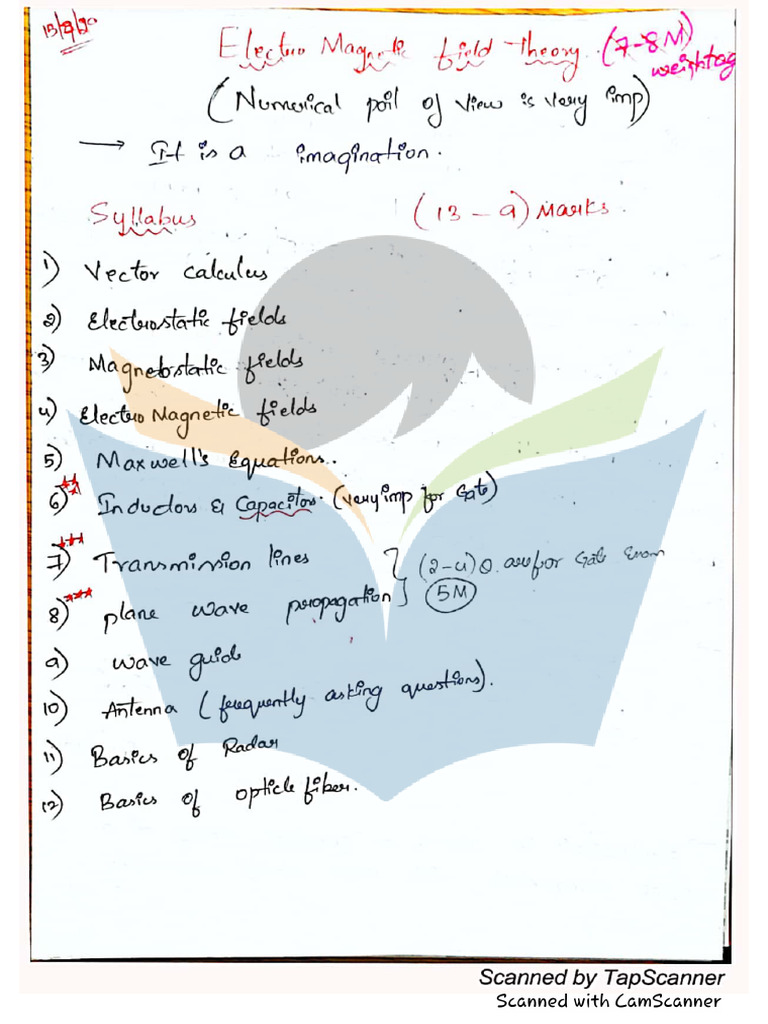 13/9/20
Electro Magnetic field Theory. (7-8M)
weightag
(Numerical poil of view is very imp)
→ It is a imagination.
Syllabus (13 - 9) Marks.
1) Vector calculus
2) Electrostatic fields
3) Magnetostatic fields
4) Electro Magnetic fields
5) Maxwell's Equations..
6)** Inductors & Capacitor. (very imp for Gate)
7)*** Transmission lines
(2-4) Q. are for Gate Exam
8)*** plane wave propagation
5M
9) wave guide
10) Antenna (frequently asking questions).
11) Basics of Radar
12) Basics of opticle fiber.
Scanned by TapScanner
Scanned with CamScanner